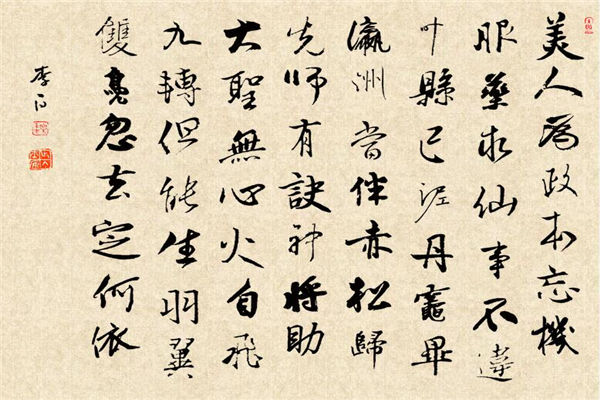 美人為政本忘機
服藥求仙事不違
叶縣已泥丹竈畢
瀛洲當伴赤松歸
先師有訣神將助
大聖無心火自飛
九轉但能生羽翼
雙鳧忽去定何依
李